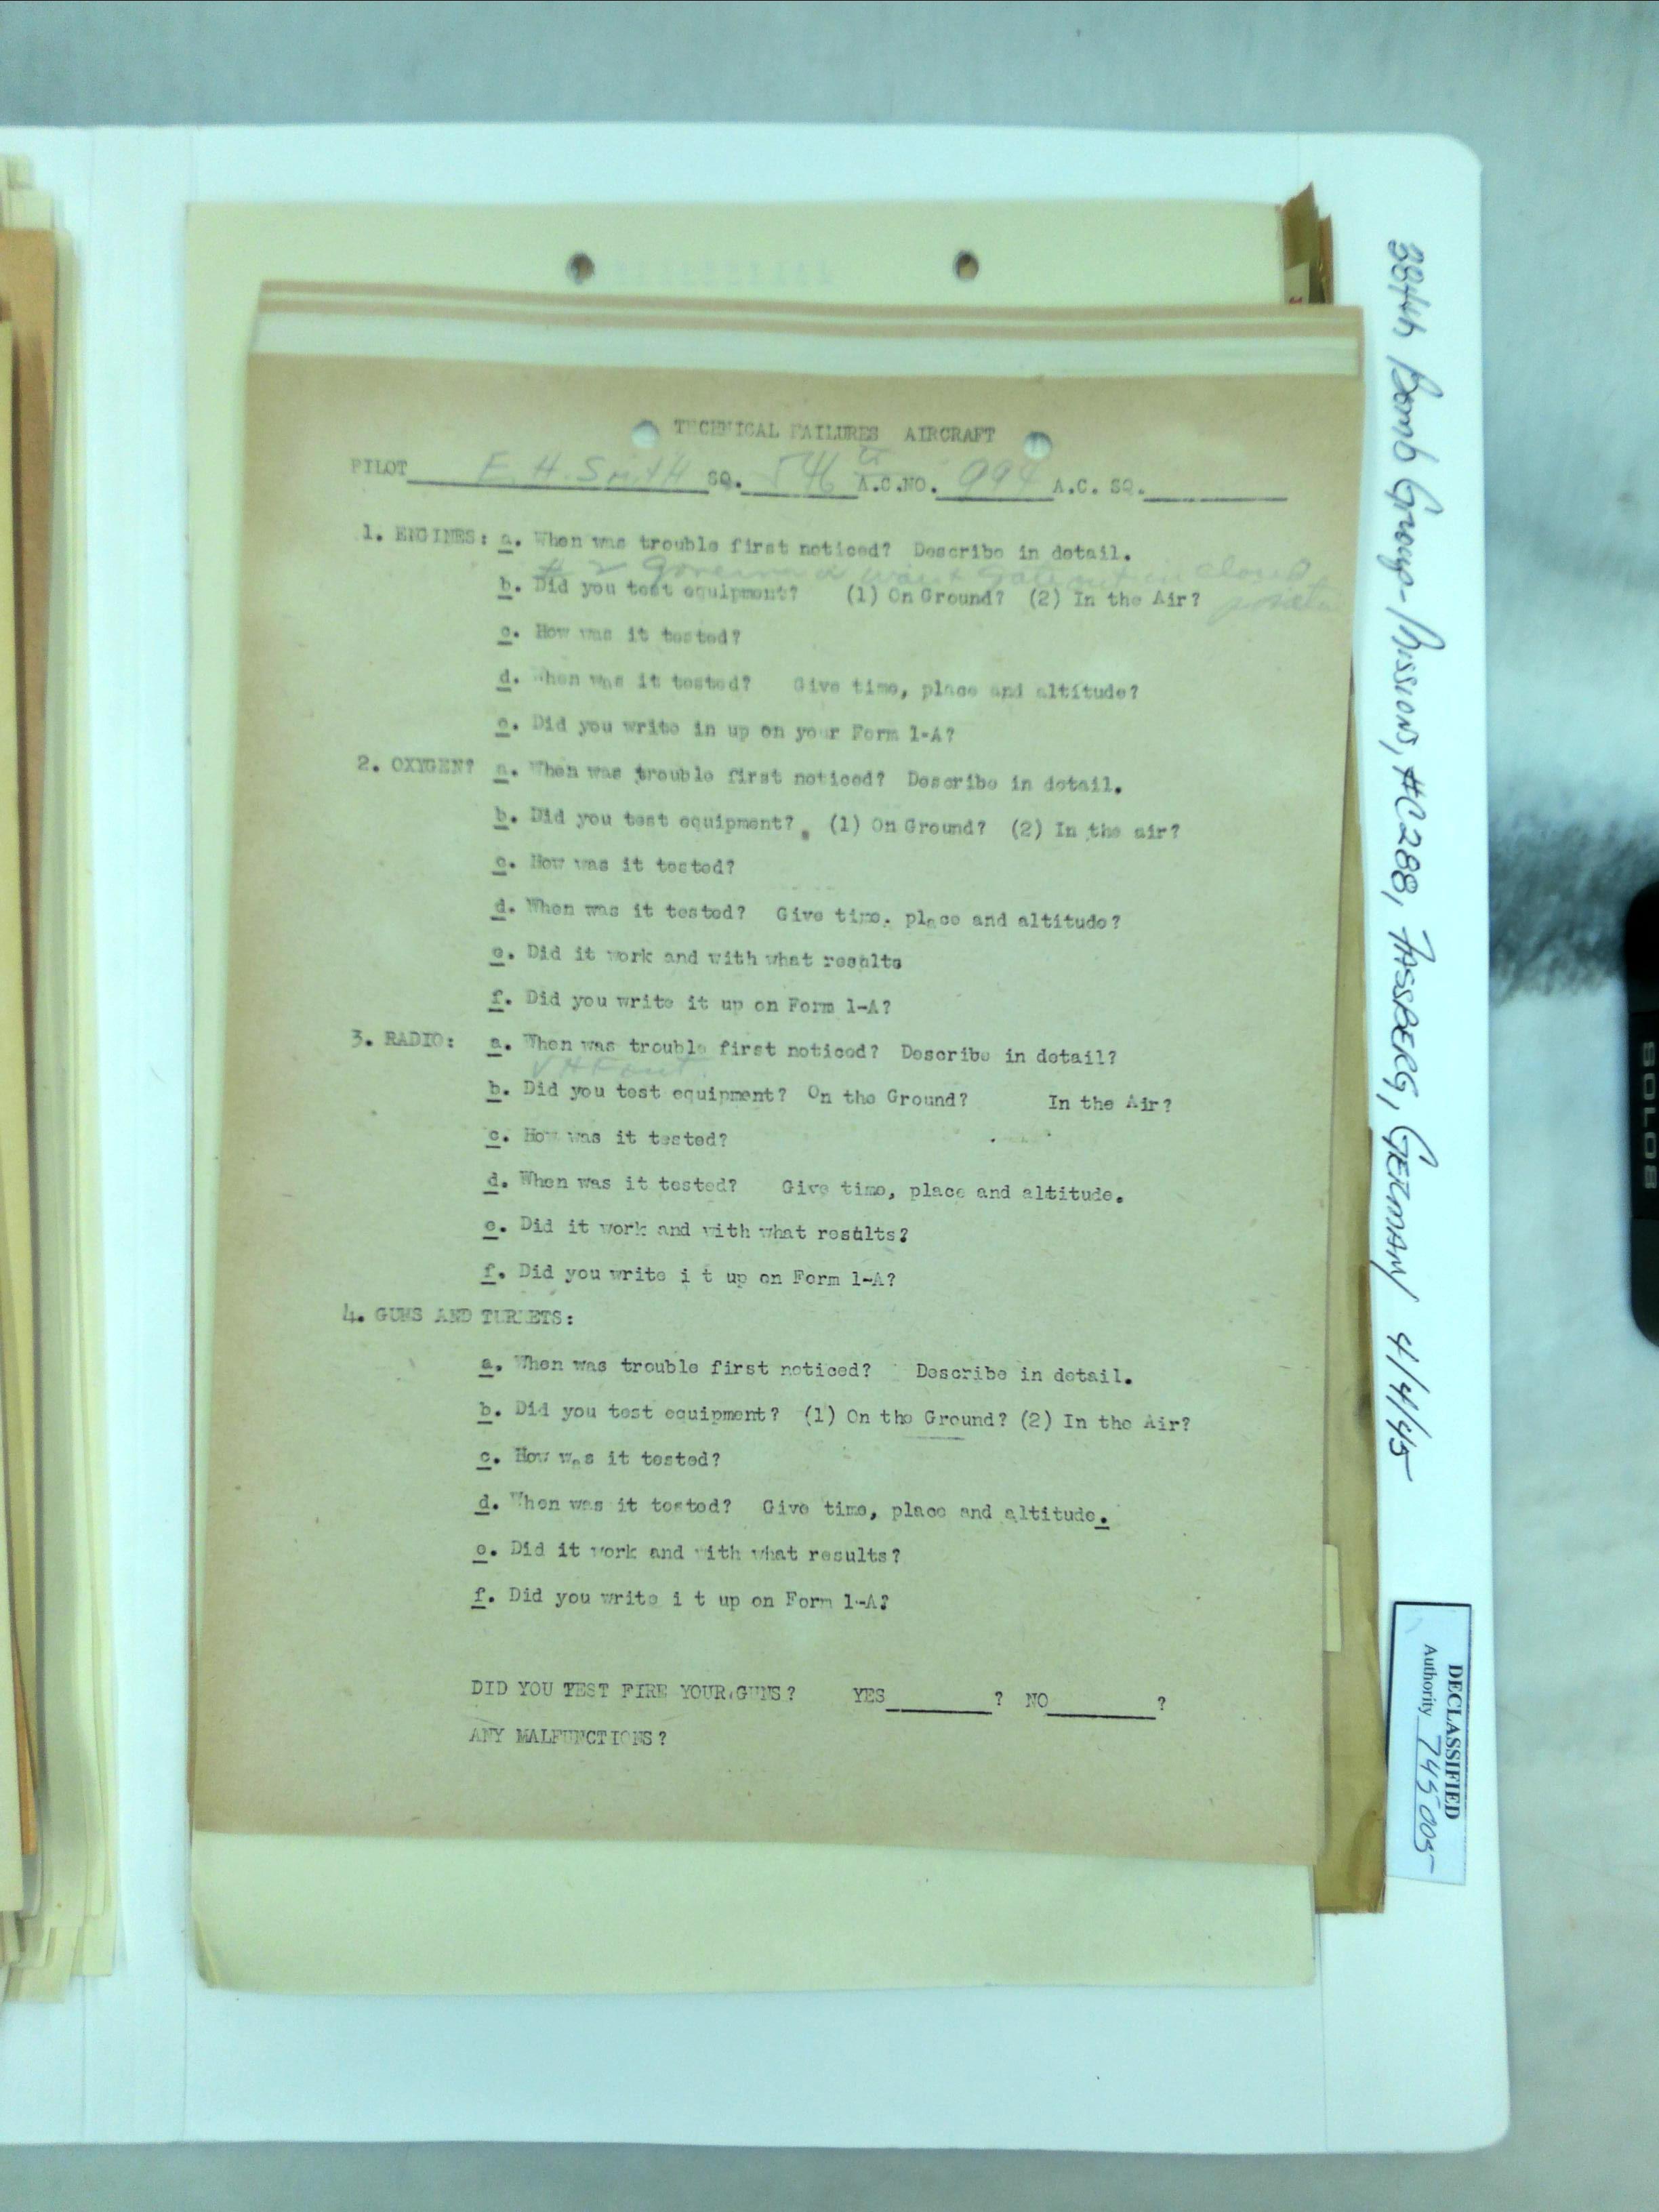 TECHNICAL FAILURES AIRCRAFT
PILOT E. H. Smith SQ. 546 A.C.NO. 994 A.C. SQ.
1. ENGINES: a. When was trouble first noticed? Describe in detail.
# 2 Governor won't in closed
b. Did you test equipment? (1) On Ground? (2) In the Air?
c. How was it tested?
d. When was it tested? Give time, place and altitude?
e. Did you write in up on your Form 1-A?
2. OXYGEN? a. When was trouble first noticed? Describe in detail.
b. Did you test equipment? (1) On Ground? (2) In the air?
c. How was it tested?
d. When was it tested? Give time, place and altitude?
e. Did it work and with what results
f. Did you write it up on Form 1-A?
3. RADIO: a. When was trouble first noticed? Describe in detail?
VHF out.
b. Did you test equipment? On the Ground? In the Air?
c. How was it tested?
d. When was it tested? Give time, place and altitude.
e. Did it work and with what results?
f. Did you write i t up on Form 1-A?
4. GUNS AND TURRETS:
a. When was trouble first noticed? Describe in detail.
b. Did you test equipment? (1) On the Ground? (2) In the Air?
c. How was it tested?
d. When was it tested? Give time, place and altitude.
e. Did it work and with what results?
f. Did you write i t up on Form 1-A?
DID YOU TEST FIRE YOUR GUNS? YES ? NO ?
ANY MALFUNCTIONS?
384th Bomb Group - Missions, #C288, FASSBERG, GERMANY 4/4/45
DECLASSIFIED
Authority 745005
SOLOS